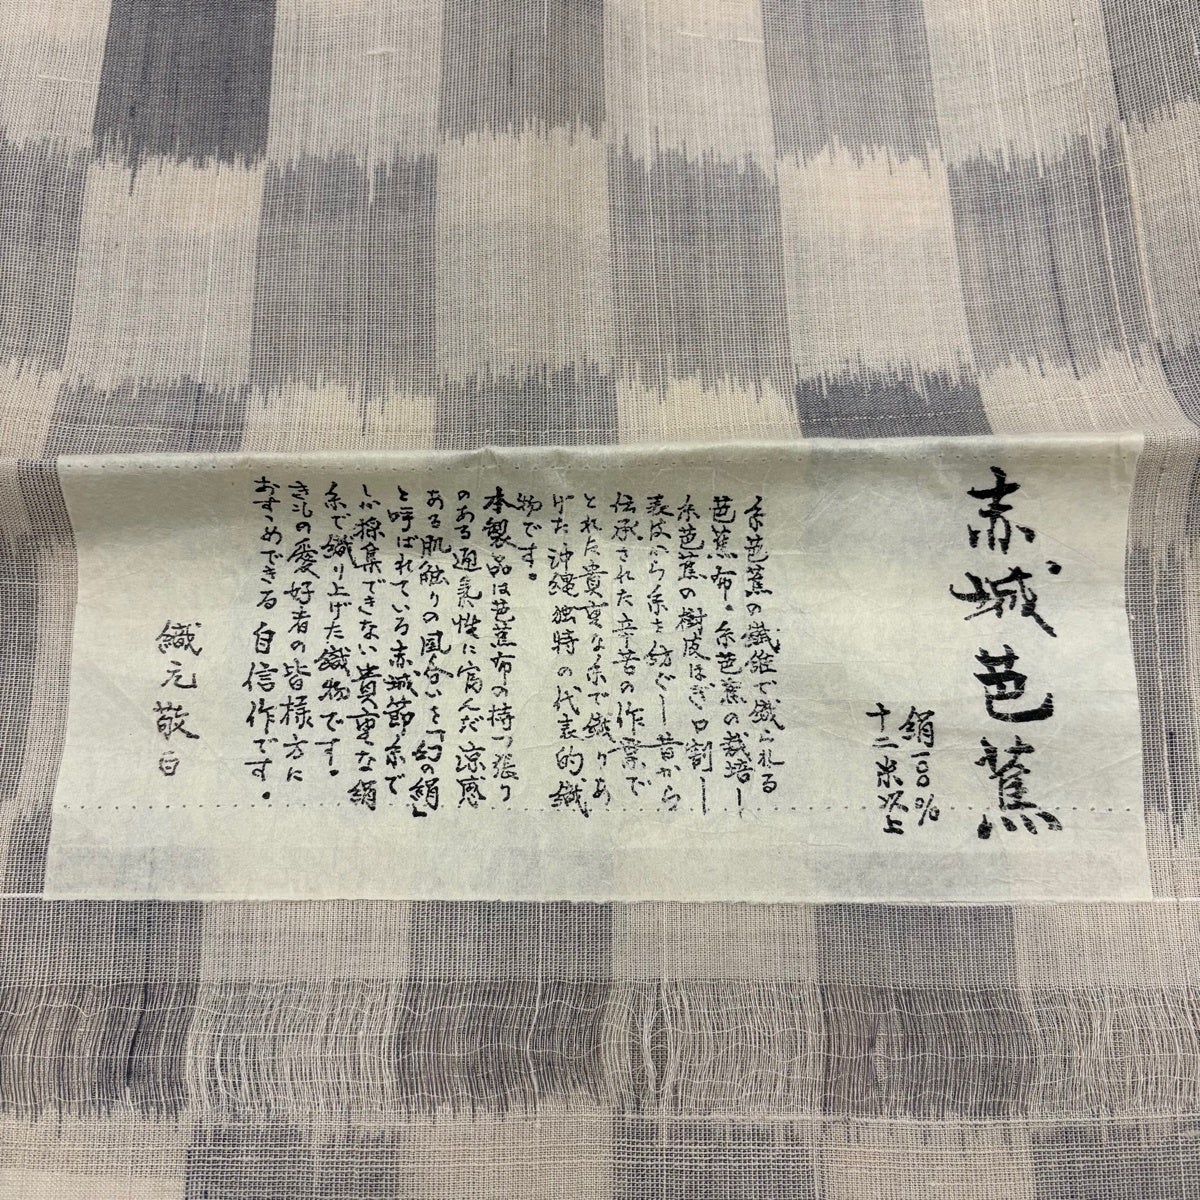 赤城芭蕉
絹一〇〇%
十二米以上
糸芭蕉の繊維で織られる
芭蕉布。糸芭蕉の栽培し
糸芭蕉の樹皮はぎ口割し
表皮から糸を紡ぐし昔から
伝承された辛苦の作業で
とれた貴重な糸で織りあ
げた沖縄独特の代表的織
物です。
本製品は芭蕉布の持つ張り
のある通気性に富んだ涼感
ある肌触りの風合いを「幻の絹」
と呼ばれている赤城節糸で
しか採集できない貴重な絹
糸で織り上げた織物です。
きもの愛好者の皆様方に
おすゝめできる自信作です。
織元敬白